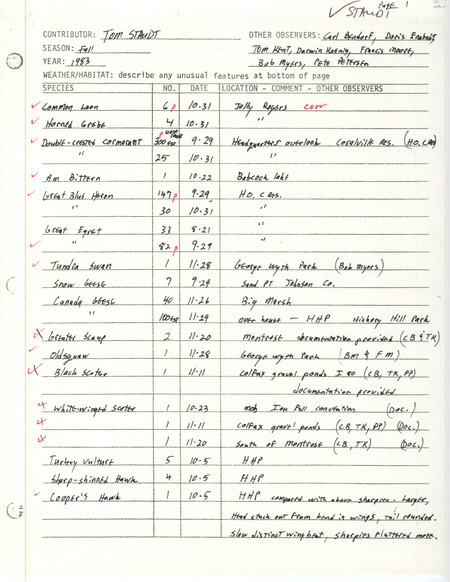 Page 1
✓ STAUDT
CONTRIBUTOR: TOM STAUDT OTHER OBSERVERS: Carl Bendorf, Doris
SEASON: Fall Tom Kent, Darwin Koenig, Francis Moore,
YEAR: 1983 Bob Myers, Pete Petersen
WEATHER/HABITAT: describe any unusual features at bottom of page
SPECIES NO. DATE LOCATION - COMMENT - OTHER OBSERVERS
Common Loon 6 p 10.31 Jolly Rogers corr
Horned Grebe 4 10.31 "
Double-crested cormorant 300 est 9-29 Headquarters overlook Coralville Res. (HO. C Res)
" 25 10.31 "
Am Bittern 1 10.22 Babcock lake
Great Blue Heron 147 p 9-29 H.O. C Res.
" 30 10.31 "
Great Egret 33 8-21 "
82 p 9-29 "
Tundra Swan 1 11-28 George Wyth Park (Bob Myers)
Snow Geese 7 9.29 Sand Pt Johnson Co.
Canada Geese 40 11-26 Big Marsh
100 est 11-29 over house - HHP Hickory Hill Park
Greater Scaup 2 11-20 Montrose documentation provided (CB & TK)
Oldsquaw 1 11-28 George Wyth Park (BM & FM)
Black Scoter 1 11-11 Colfax gravel ponds I 80 (CB, TK, PP)
documentation provided
White-winged Scoter 1 10-23 Iou Fall convention (Doc.)
1 11-11 Colfax gravel ponds (CB, TK, PP) (Doc.)
1 11-20 South of Montrose (CB, TK) (Doc)
Turkey Vulture 5 10-5 HHP
Sharp-shinned Hawk 4 10-5 HHP
Cooper's Hawk 1 10-5 HHP compared with above sharpies. Larger,
Head stuck out from bend in wings, tail rounded.
Slow distinct wingbeat, sharpies fluttered more.